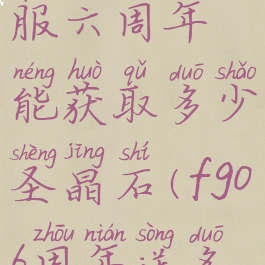 服六周年
néng huò qǔ duō shǎo
能获取多少
shèng jīng shí
圣晶石(fgo
zhōu nián sòng duō
6周年送多